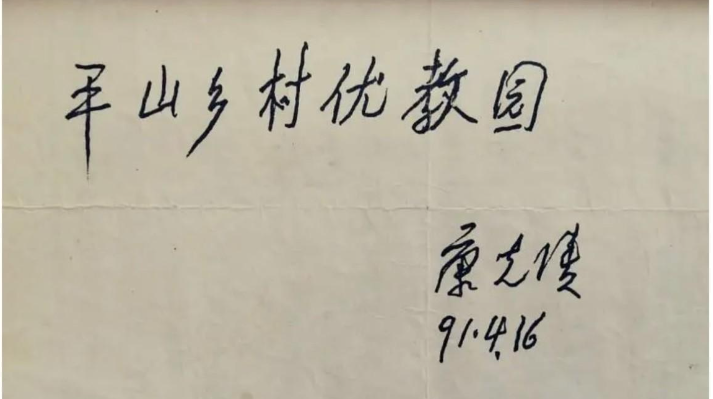 平山乡村优教园
康克清
91.4.16